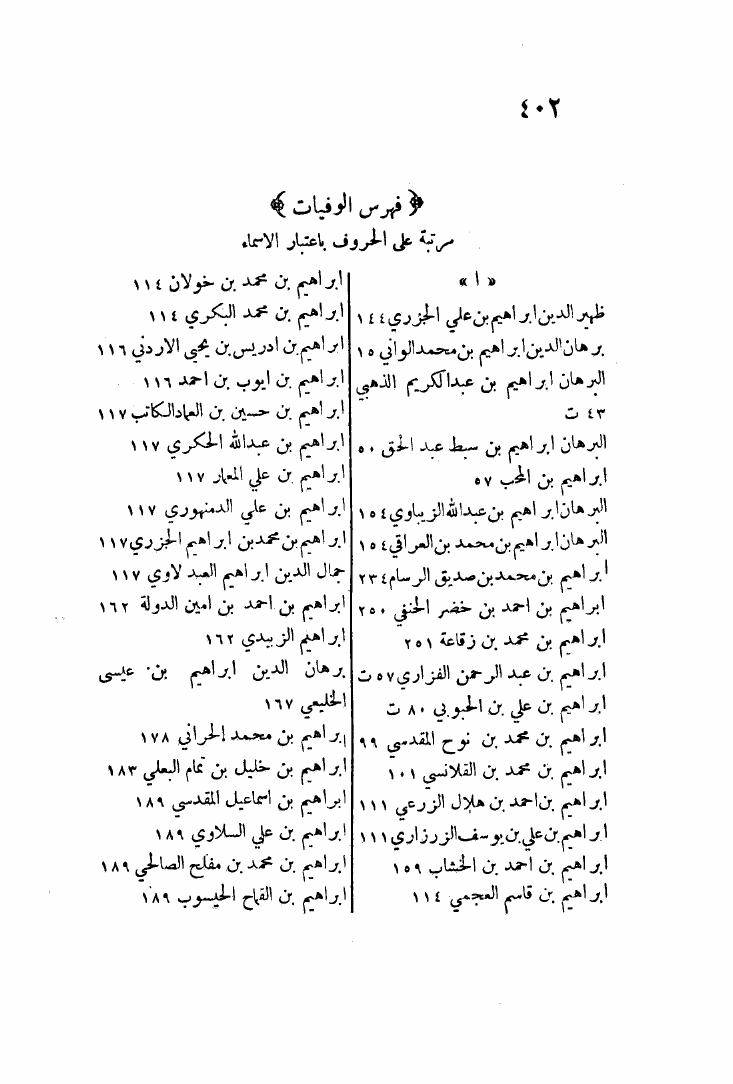 ٤٠٢
﴿ فهرس الوفيات ﴾
مرتبة على الحروف باعتبار الاسماء
« ا »
ظهير الدين ابراهيم بن علي الجزري ١٤٤
برهان الدين ابراهيم بن محمد الواني ١٥
البرهان ابراهيم بن عبد الكريم الذهبي
٤٣ ت
البرهان ابراهيم بن سبط عبد الحق ٥٠
ابراهيم بن المحب ٥٧
البرهان ابراهيم بن عبدالله الزيباوي ١٥٤
البرهان ابراهيم بن محمد بن العراقي ١٥٤
ابراهيم بن محمد بن صديق الرسام ٢٣٤
ابراهيم بن احمد بن خضر الحنفي ٢٥٠
ابراهيم بن محمد بن زقاعة ٢٥١
ابراهيم بن عبد الرحمن الفزاري ٥٧ ت
ابراهيم بن علي بن الحبوبي ٨٠ ت
ابراهيم بن محمد بن نوح المقدسي ٩٩
ابراهيم بن محمد بن القلانسي ١٠١
ابراهيم بن احمد بن هلال الزرعي ١١١
ابراهيم بن علي بن يوسف الزرزاري ١١١
ابراهيم بن احمد بن الخشاب ١٥٩
ابراهيم بن قاسم العجمي ١١٤
ابراهيم بن محمد بن خولان ١١٤
ابراهيم بن محمد البكري ١١٤
ابراهيم بن ادريس بن يحيى الاردني ١١٦
ابراهيم بن ايوب بن احمد ١١٦
ابراهيم بن حسين بن العماد الكاتب ١١٧
ابراهيم بن عبدالله الحكري ١١٧
ابراهيم بن علي المعمار ١١٧
ابراهيم بن علي الدمنهوري ١١٧
ابراهيم بن محمد بن ابراهيم الجزري ١١٧
جمال الدين ابراهيم العبدلاوي ١١٧
ابراهيم بن احمد بن امين الدولة ١٦٢
ابراهيم الزبيدي ١٦٢
برهان الدين ابراهيم بن عيسى
الخليعي ١٦٧
ابراهيم بن محمد الحراني ١٧٨
ابراهيم بن خليل بن تمام البعلي ١٨٣
ابراهيم بن اسماعيل المقدسي ١٨٩
ابراهيم بن علي السلاوي ١٨٩
ابراهيم بن محمد بن مفلح الصالحي ١٨٩
ابراهيم بن القماح الحيسوب ١٨٩